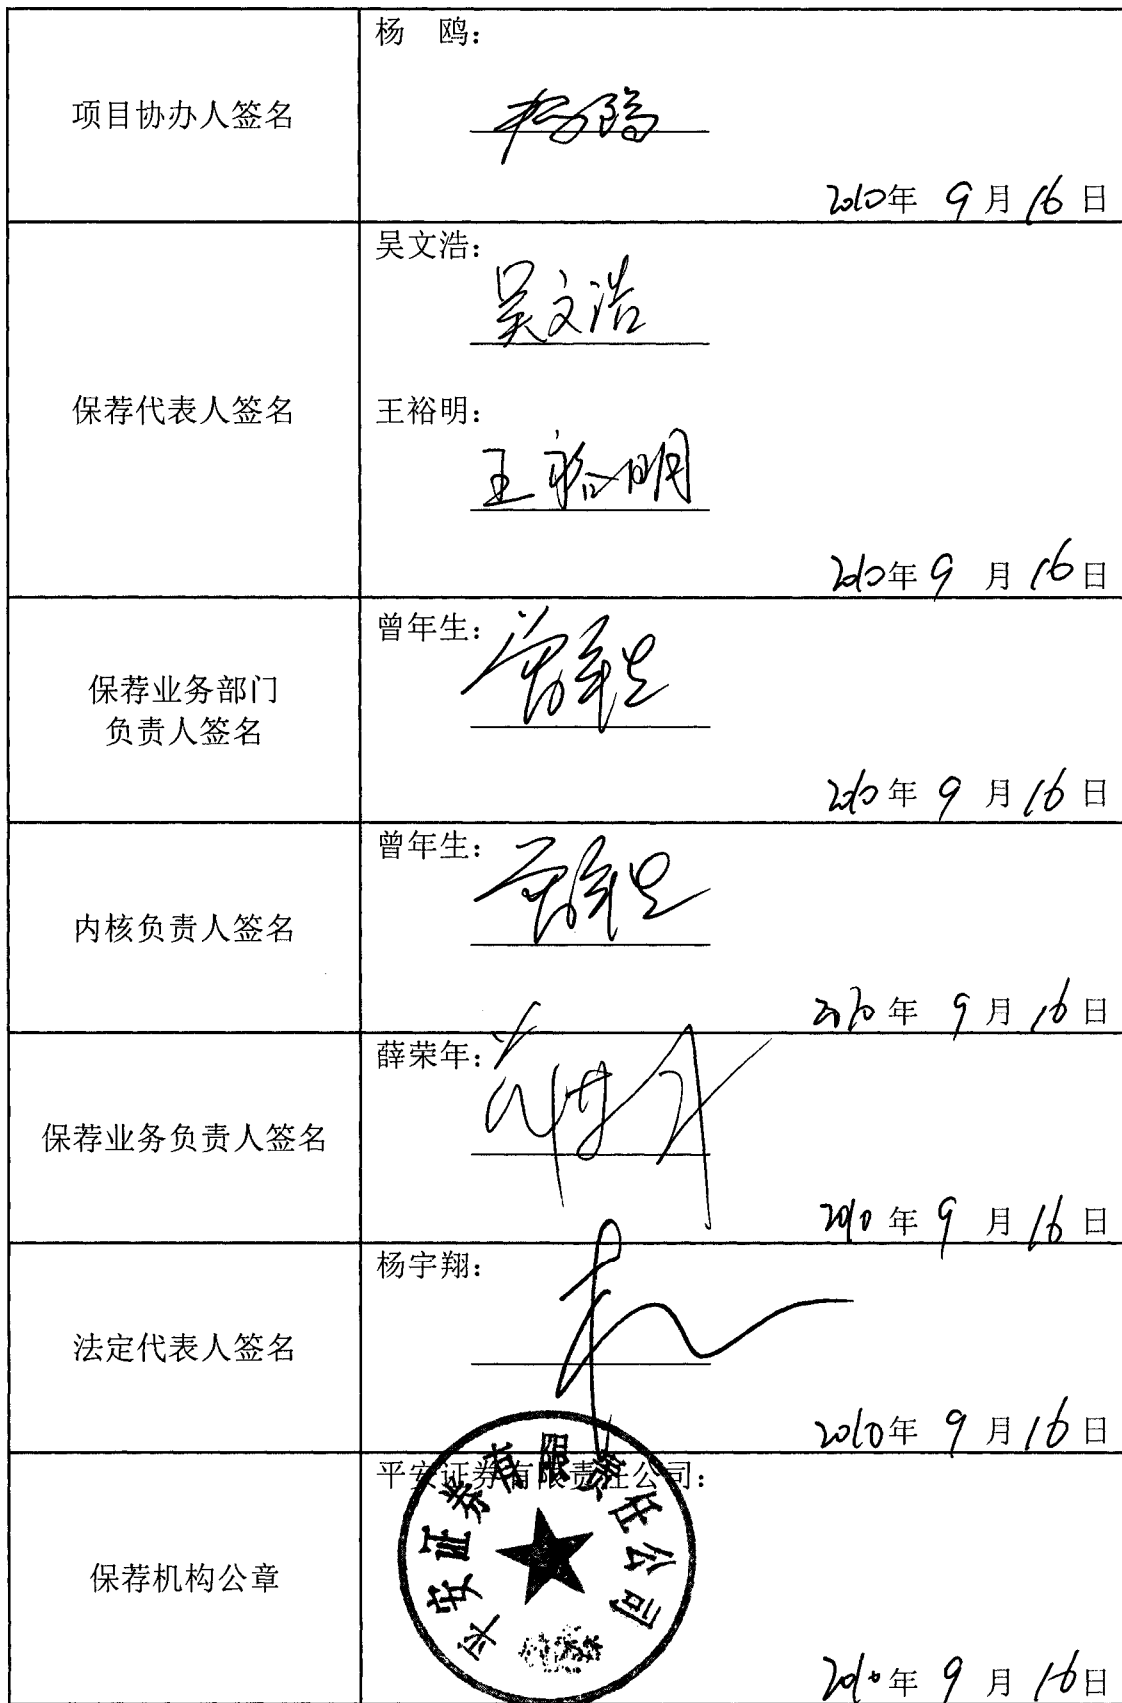 项目协办人签名
杨 鸥:
杨鸥
2010年 9月16日
保荐代表人签名
吴文浩:
吴文浩
王裕明:
王裕明
2010年9月16日
保荐业务部门
负责人签名
曾年生:
曾年生
2010年9月16日
内核负责人签名
曾年生:
曾年生
2010年9月16日
保荐业务负责人签名
薛荣年:
2010年9月16日
法定代表人签名
杨宇翔:
2010年9月16日
保荐机构公章
平安证券有限责任公司:
平安证券有限责任公司
2010年9月16日